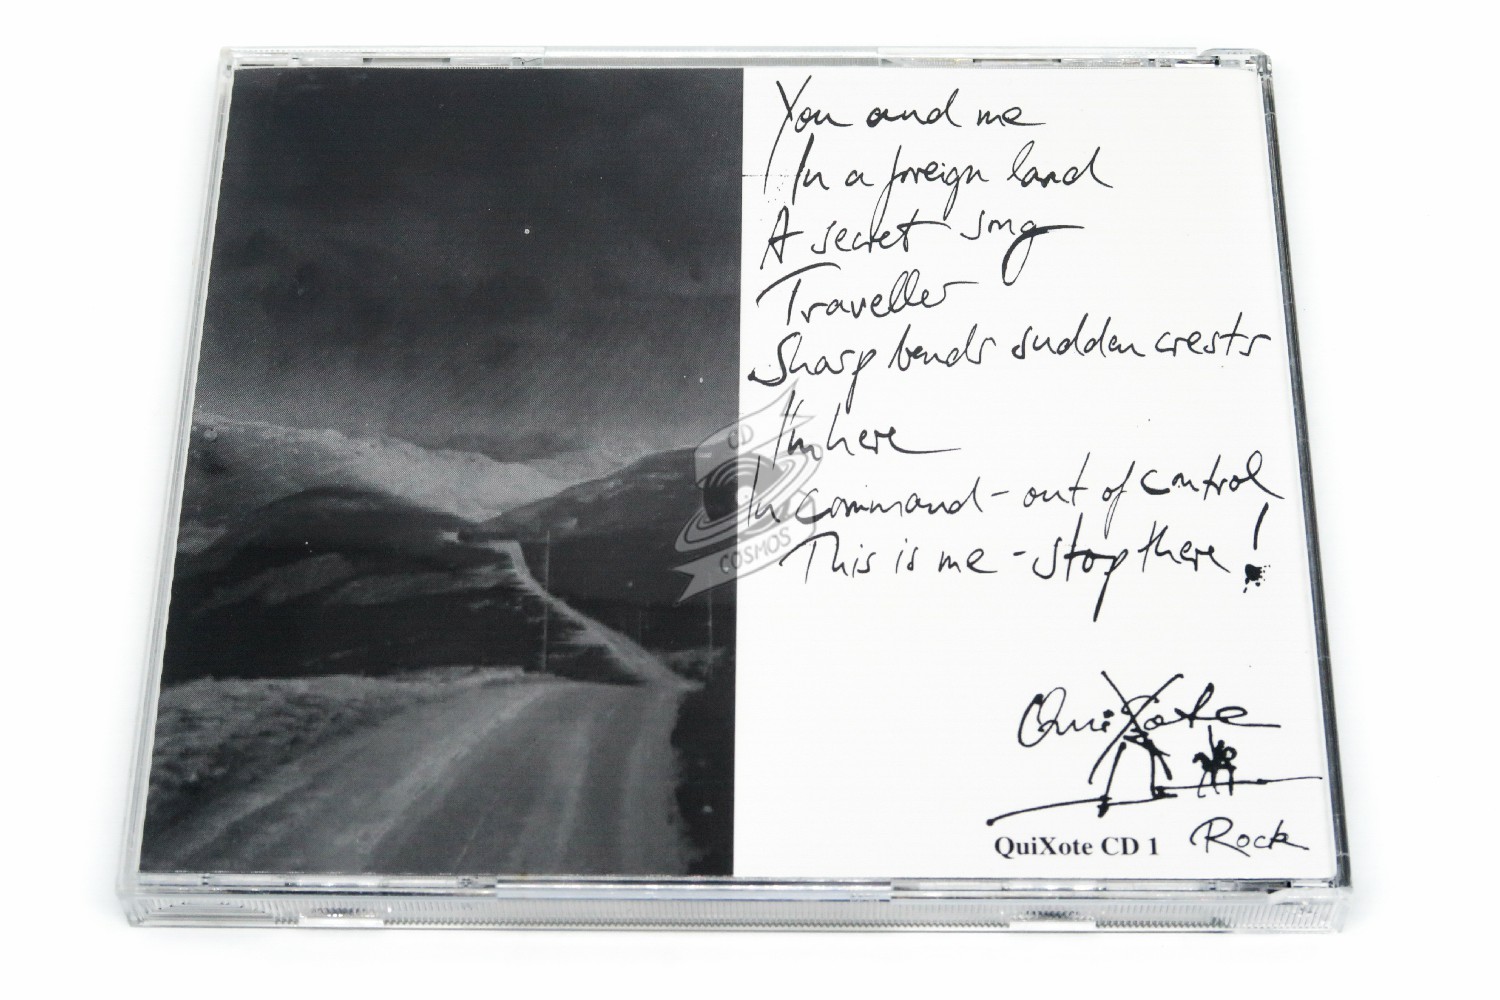 You and me
In a foreign land
A secret song
Traveller
Sharp bends sudden crests
I'm here
In command - out of control
This is me - stop there!
CD
COSMOS
QuiXote
QuiXote CD 1
Rock